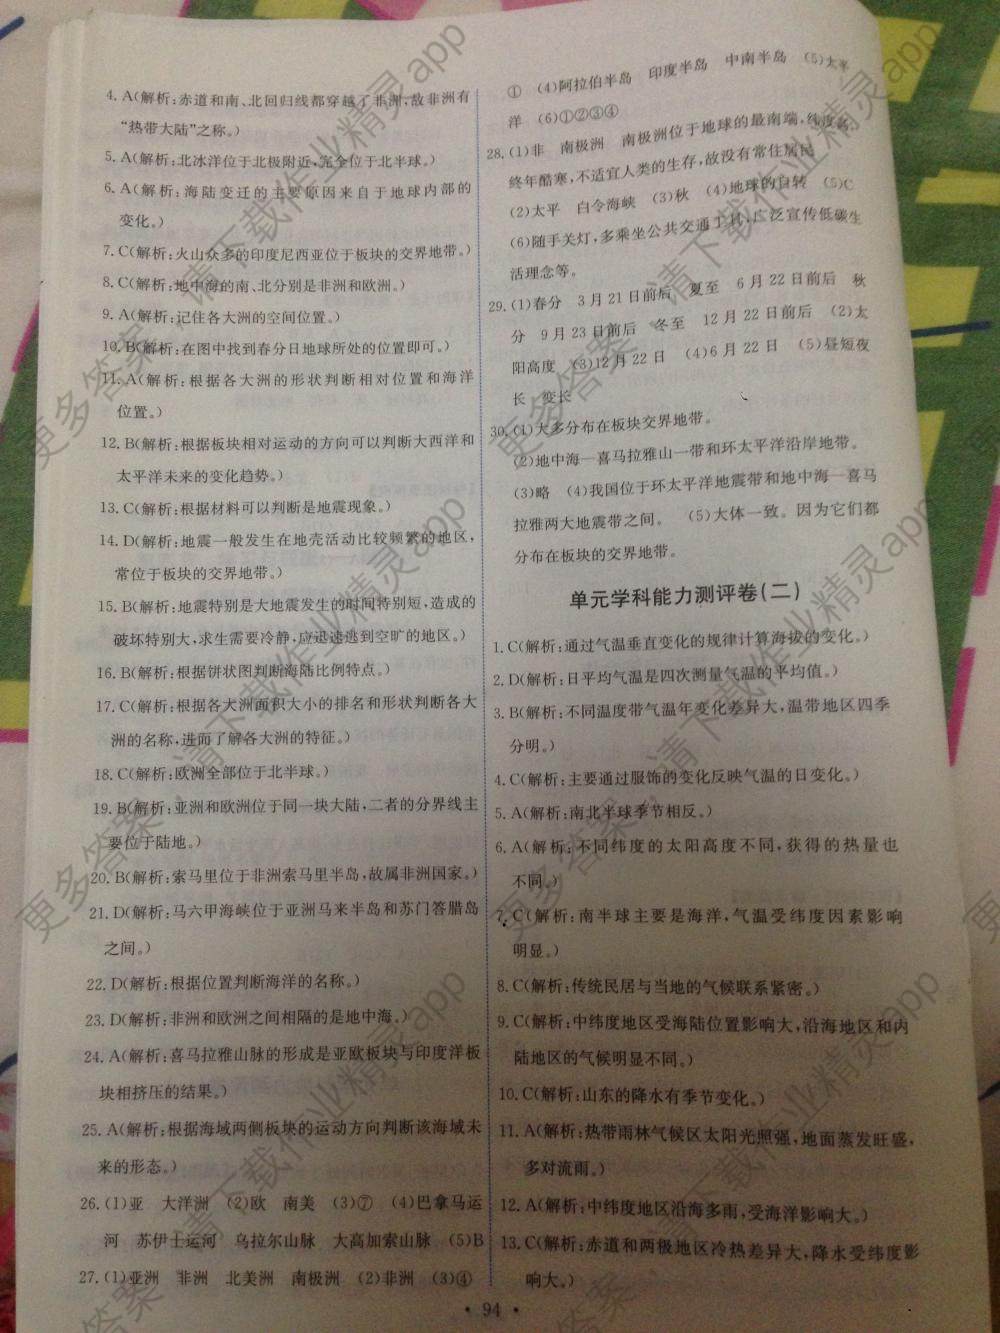 4. A(解析:赤道和南、北回归线都穿越了非洲,故非洲有
“热带大陆”之称。)
5. A(解析:北冰洋位于北极附近,完全位于北半球。)
6. A(解析:海陆变迁的主要原因来自于地球内部的
变化。)
7. C(解析:火山众多的印度尼西亚位于板块的交界地带。)
8. C(解析:地中海的南、北分别是非洲和欧洲。)
9. A(解析:记住各大洲的空间位置。)
10. B(解析:在图中找到春分日地球所处的位置即可。)
11. A(解析:根据各大洲的形状判断相对位置和海洋
位置。)
12. B(解析:根据板块相对运动的方向可以判断大西洋和
太平洋未来的变化趋势。)
13. C(解析:根据材料可以判断是地震现象。)
14. D(解析:地震一般发生在地壳活动比较频繁的地区,
常位于板块的交界地带。)
15. B(解析:地震特别是大地震发生的时间特别短,造成的
破坏特别大,求生需要冷静,应迅速逃到空旷的地区。)
16. B(解析:根据饼状图判断海陆比例特点。)
17. C(解析:根据各大洲面积大小的排名和形状判断各大
洲的名称,进而了解各大洲的特征。)
18. C(解析:欧洲全部位于北半球。)
19. B(解析:亚洲和欧洲位于同一块大陆,二者的分界线主
要位于陆地。)
20. B(解析:索马里位于非洲索马里半岛,故属非洲国家。)
21. D(解析:马六甲海峡位于亚洲马来半岛和苏门答腊岛
之间。)
22. D(解析:根据位置判断海洋的名称。)
23. D(解析:非洲和欧洲之间相隔的是地中海。)
24. A(解析:喜马拉雅山脉的形成是亚欧板块与印度洋板
块相挤压的结果。)
25. A(解析:根据海域两侧板块的运动方向判断该海域未
来的形态。)
26. (1)亚 大洋洲 (2)欧 南美 (3)⑦ (4)巴拿马运
河 苏伊士运河 乌拉尔山脉 大高加索山脉 (5)B
27. (1)亚洲 非洲 北美洲 南极洲 (2)非洲 (3)④
① (4)阿拉伯半岛 印度半岛 中南半岛 (5)太平
洋 (6)①②③④
28. (1)非 南极洲 南极洲位于地球的最南端,纬度高,
终年酷寒,不适宜人类的生存,故没有常住居民
(2)太平 白令海峡 (3)秋 (4)地球的自转 (5)C
(6)随手关灯,多乘坐公共交通工具,广泛宣传低碳生
活理念等。
29. (1)春分 3月21日前后 夏至 6月22日前后 秋
分 9月23日前后 冬至 12月22日前后 (2)太
阳高度 (3)12月22日 (4)6月22日 (5)昼短夜
长 变长
30. (1)大多分布在板块交界地带。
(2)地中海—喜马拉雅山一带和环太平洋沿岸地带。
(3)略 (4)我国位于环太平洋地震带和地中海—喜马
拉雅两大地震带之间。 (5)大体一致。因为它们都
分布在板块的交界地带。
单元学科能力测评卷(二)
1. C(解析:通过气温垂直变化的规律计算海拔的变化。)
2. D(解析:日平均气温是四次测量气温的平均值。)
3. B(解析:不同温度带气温年变化差异大,温带地区四季
分明。)
4. C(解析:主要通过服饰的变化反映气温的日变化。)
5. A(解析:南北半球季节相反。)
6. A(解析:不同纬度的太阳高度不同,获得的热量也
不同。)
7. C(解析:南半球主要是海洋,气温受纬度因素影响
明显。)
8. C(解析:传统民居与当地的气候联系紧密。)
9. C(解析:中纬度地区受海陆位置影响大,沿海地区和内
陆地区的气候明显不同。)
10. C(解析:山东的降水有季节变化。)
11. A(解析:热带雨林气候区太阳光照强,地面蒸发旺盛,
多对流雨。)
12. A(解析:中纬度地区沿海多雨,受海洋影响大。)
13. C(解析:赤道和两极地区冷热差异大,降水受纬度影
响大。)
• 94 •
更多答案,请下载作业精灵app
更多答案,请下载作业精灵app
更多答案,请下载作业精灵app
更多答案,请下载作业精灵app